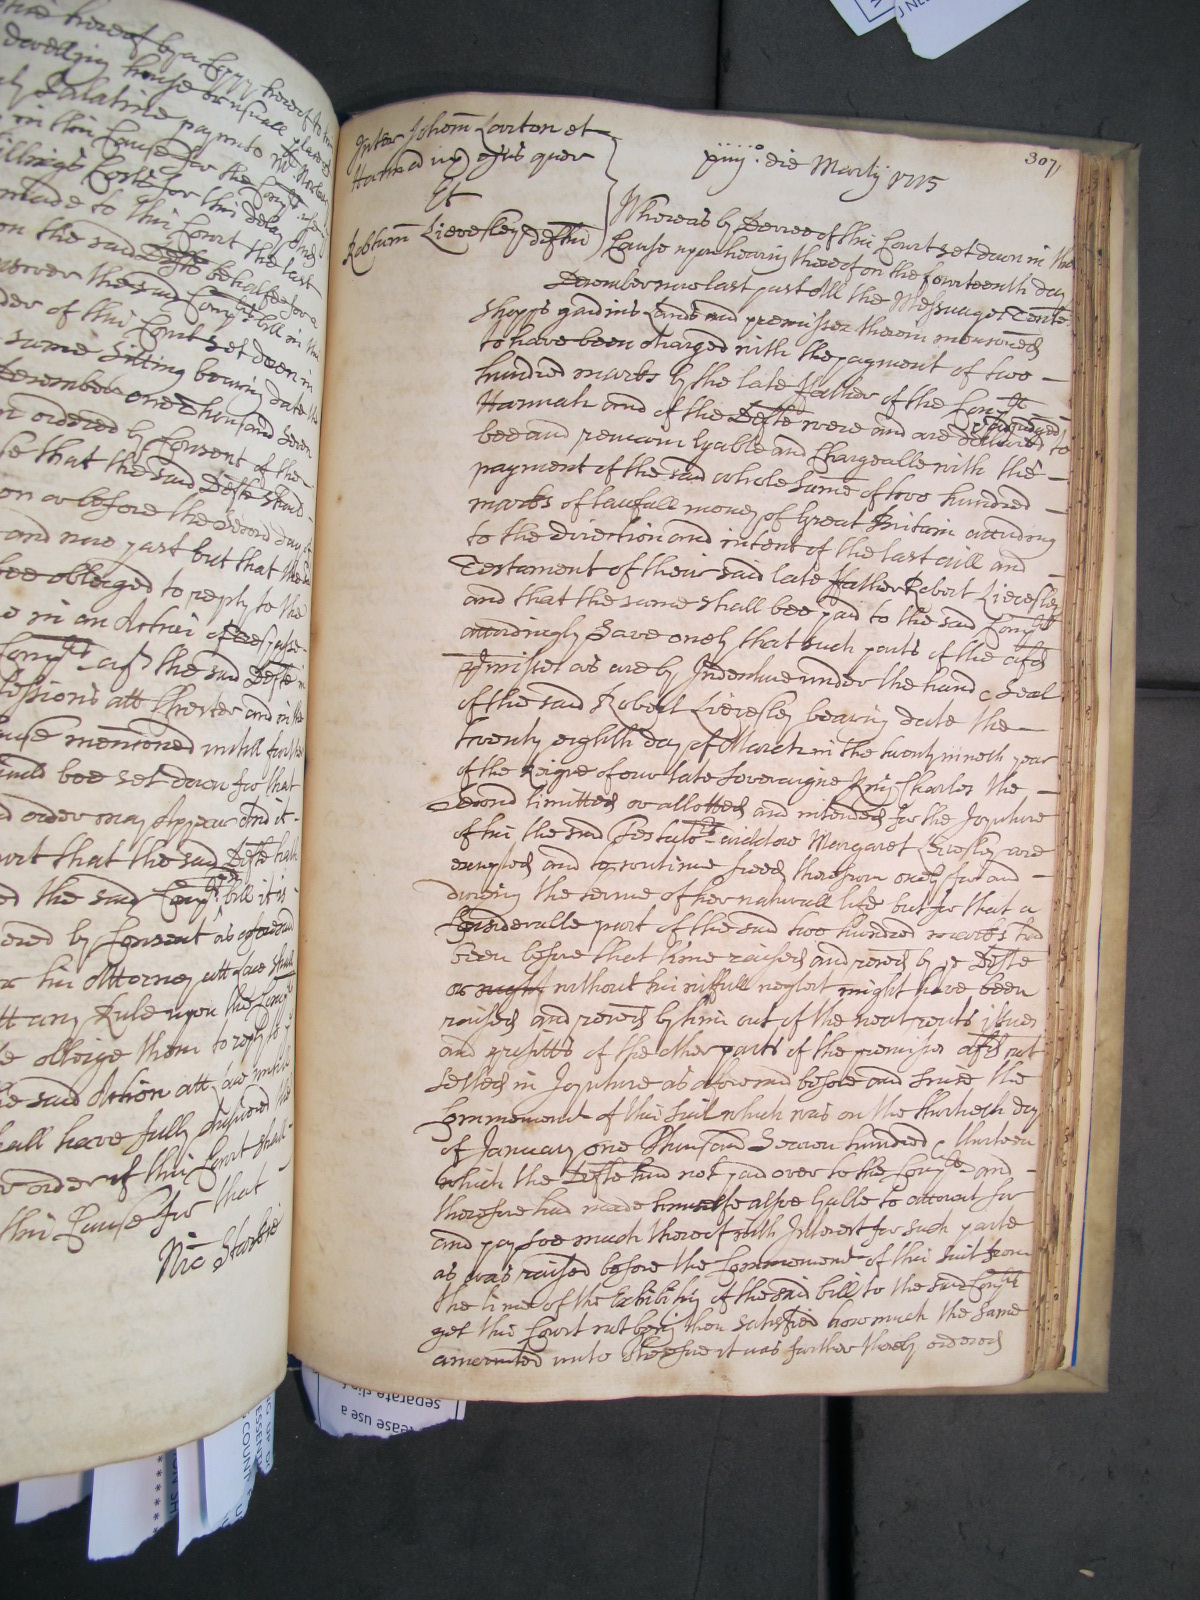 ...tice hereof by a Coppy hereof to
dwelling house or usuall place of
Palatine paym to Mr
in this Cause for the Comp
Costs for this delay
made to this Court the last
on the said Defts behalfe for a
answer the said Compts bill in this
order of this Court set down in
same Sitting bearing date the
December one thousand Seven
ordered by Consent of the
that the said Defts
on or before the second day of
and now past but that the
bee obleiged to reply to the
in an Action of Trespasse
Compts agt the said Defts in
Sessions att Chester and in the
Cause mentioned untill further
bee set down for that
order may Appear And it
Court that the said Defte hath
the said Compts bill it is
ordered by Consent as aforesaid
his Attorney att Law shall
att any Rule upon the Compts
obleige them to reply to
the said Action att Law untill
shall have fully Answered the
order of this Court shall
this Cause for that
Nic Starkie
307
Inter Johem Lorton et
Hannah ux ejus quer
Et
Robtum Livesley Deftm
die Martij 1715
Whereas by Decree of this Court set down in this
Cause upon hearing thereof on the fourteenth day
December now last past All the Messuages Tents
Shopps gardins Lands and premisses therein menconed
to have been charged with the payment of two –
hundred marks by the late father of the Compte
Hannah and of the Defte were and are declared to
bee and remain lyable and Chargeable with the –
payment of the said whole Sume of two hundred –
marks of lawfull money of Great Britain according
to the direction and intent of the last will and –
Testament of their said late ffather Robert Livesley
and that the same shall bee paid to the said Compts
accordingly Save onely that such parts of the afsd
premisses as are by Indenture under the hand & Seal
of the said Robert Livesley bearing date the –
twenty eighth day of March in the twenty nineth year
of the Reigne of our late Soveraigne King Charles the –
Second limitted or allotted and intended for the Joynture
of his the said Testators widdow Margaret Livesley are
excepted and to continue freed therefrom onely for and –
during the terme of her naturall life but for that a
Considerable part of the said two hundred marks had
been before that time raised and reced by ye Defte
or might without his wilfull neglect might have been
raised and reced by him out of the neat rents issues
and profitts of the other parts of the premisses afsd not
setled in Joynture as aforesaid before and since the
Commencemt of this Suit which was on the thirtieth day
of January one Thousand Seaven hundred & thirteen
which the Defte had not paid over to the Compte and –
therefore had made himselfe alsoe lyable to account for
and pay soe much thereof with Interest for such parte
as was raised before the Commencemt of this Suit from
the time of the Exhibiting of the said bill to the said Compts
yet this Court not being then satisfied how much the same
amounted unto Therefore it was further thereby ordered